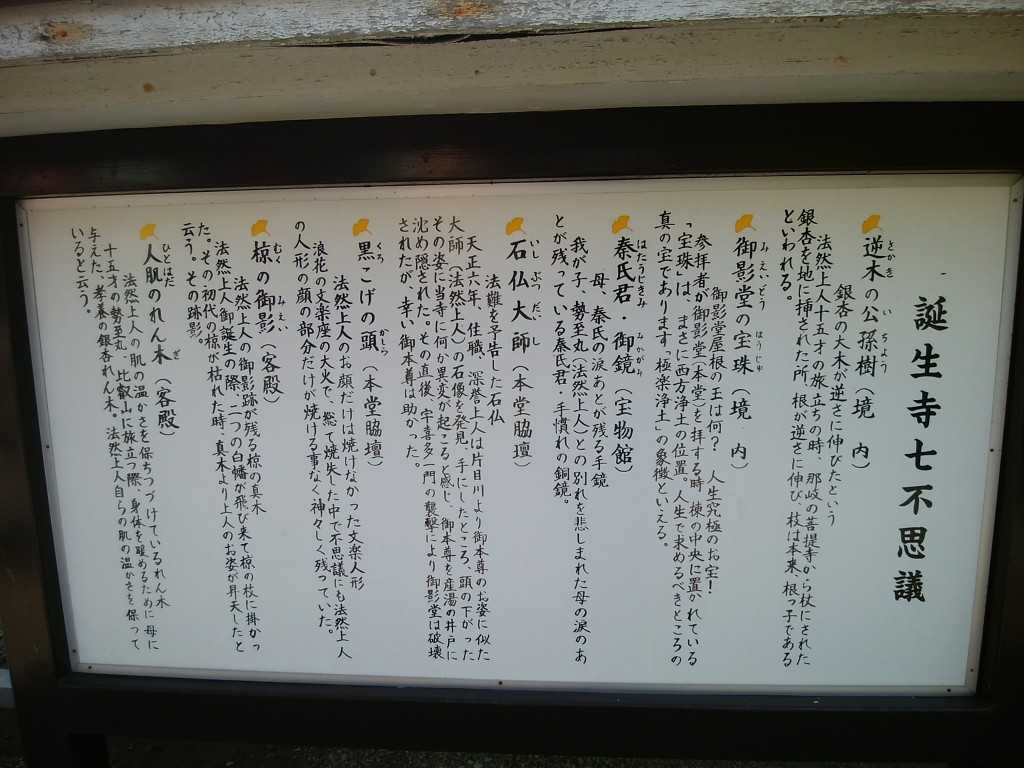 誕生寺七不思議
逆木の公孫樹（境　内）
銀杏の大木が逆さに伸びたという
法然上人十五才の旅立ちの時、那岐の菩提寺から杖にされた
銀杏を地に挿された所、根が逆さに伸び、枝は本来、根っ子である
といわれる。
御影堂の宝珠（境　内）
御影堂屋根の玉は何？　人生究極のお宝！
参拝者が御影堂（本堂）を拝する時、棟の中央に置かれている
「宝珠」は、まさに西方浄土の位置。人生で求めるべきところの
真の宝であります「極楽浄土」の象徴といえる。
秦氏君・御鏡（宝物館）
母、秦氏の涙あとが残る手鏡
我が子、勢至丸（法然上人）との別れを悲しまれた母の涙のあ
とが残っている秦氏君・手慣れの銅鏡。
石仏大師（本堂脇壇）
法難を予告した石仏
天正六年、住職、深誉上人は片目川より御本尊のお姿に似た
大師（法然上人）の石像を発見、手にしたところ、頭の下がった
その姿に当寺に何か異変が起こると感じ、御本尊を産湯の井戸に
沈め隠された。その直後、宇喜多一門の襲撃により御影堂は破壊
されたが、幸い御本尊は助かった。
黒こげの頭（本堂脇壇）
法然上人のお顔だけは焼けなかった文楽人形
浪花の文楽座の大火で、総て焼失した中で不思議にも法然上人
の人形の顔の部分だけが焼ける事なく神々しく残っていた。
椋の御影（客殿）
法然上人の御影跡が残る椋の真木
法然上人御誕生の際、二つの白幡が飛び来て椋の枝に掛かっ
た。その初代の椋が枯れた時、真木より上人のお姿が昇天したと
云う。その跡影。
人肌のれん木（客殿）
法然上人の肌の温かさを保ちつづけているれん木
十五才の勢至丸、比叡山に旅立つ際、身体を暖めるために母に
与えた、孝養の銀杏れん木。法然上人自らの肌の温かさを保って
いると云う。